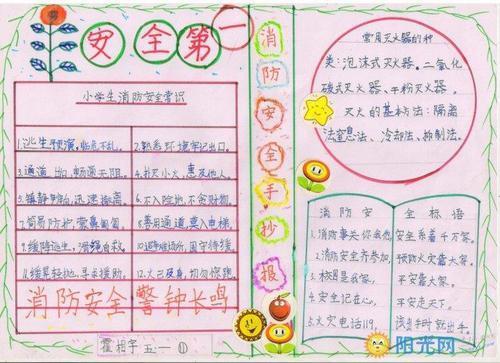 安全第一
小学生消防安全常识
1.逃生预演,临危不乱。
2.熟悉环境牢记出口。
3.通道出口,畅通无阻。
4.扑灭小火,惠及他人。
5.镇静辨向,迅速撤离。
6.不入险地,不贪财物。
7.简易防护,蒙鼻匍匐。
8.善用通道,莫入电梯。
9.缓降逃生,滑绳自救。
10.避难场所,固守待援。
11.缓晃轻抛,寻求援助。
12.火已及身,切勿惊跑。
消防安全 警钟长鸣
霍相宇 五一 ①
消防安全手抄报
常见灭火器的种
类:泡沫式灭火器。二氧化
碳式灭火器、干粉灭火器。
灭火的基本方法:隔离
法窒息法、冷却法、抑制法。
消防安全标语
1.消防事关你我他,安全系着千万家。
2.消防安全齐参加,预防火灾靠大家。
3.校园是我家,平安靠大家。
4.安全记在心,平安走天下。
5.火灾电话119,该出手时就出手。
阳光网